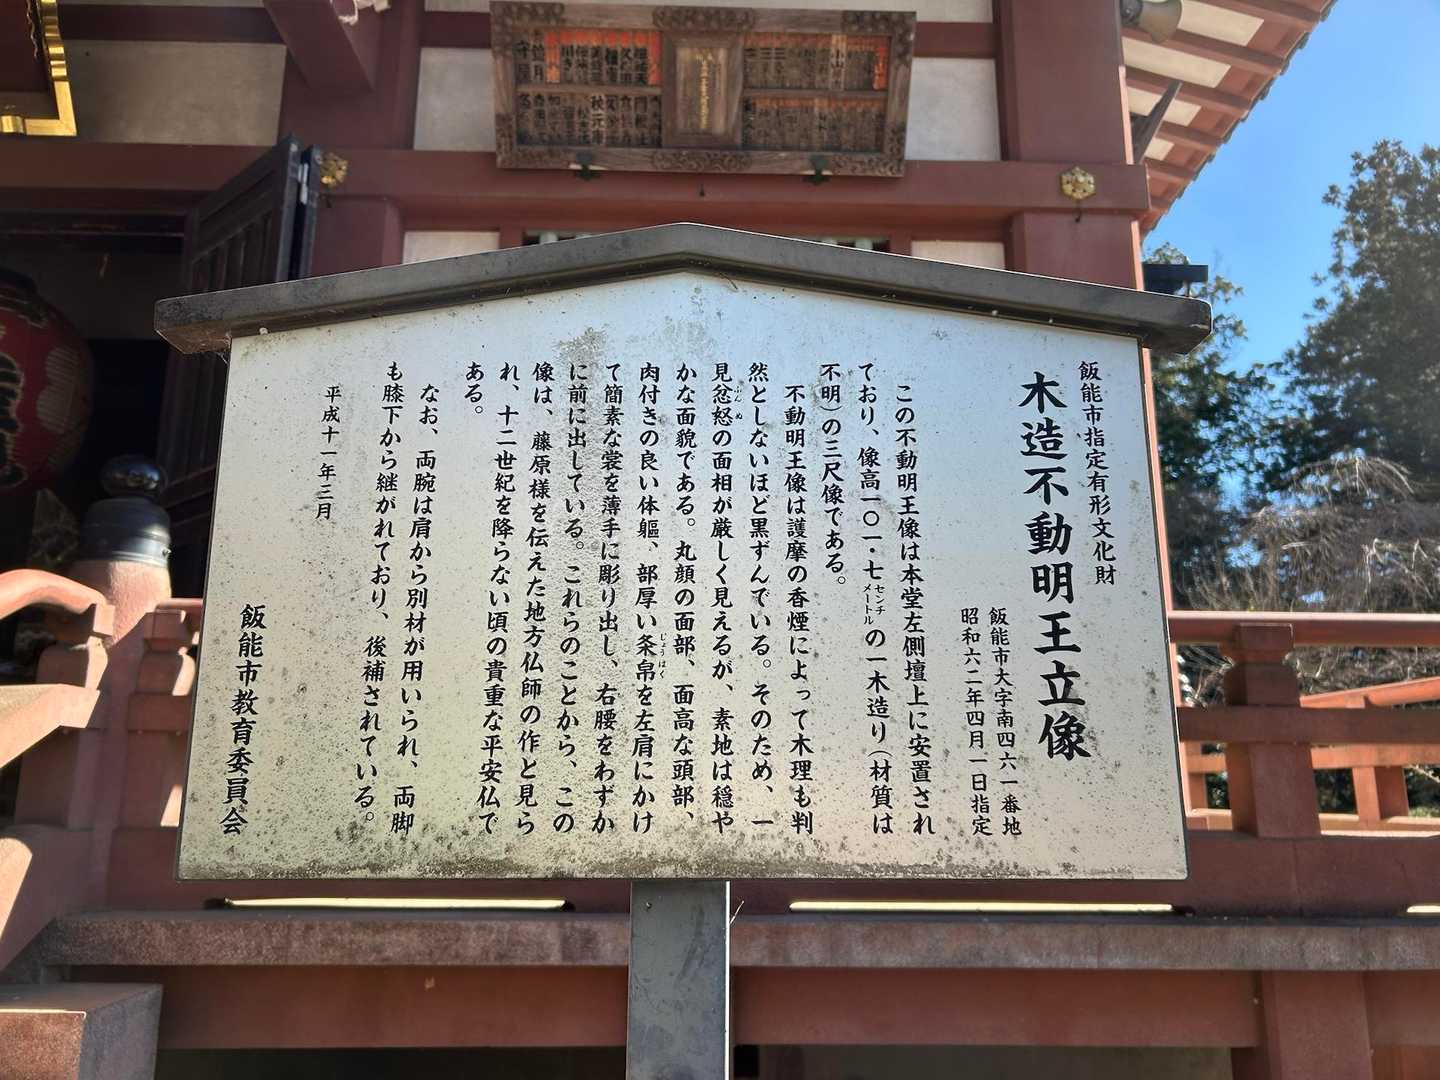 飯能市指定有形文化財
木造不動明王立像
飯能市大字南四六一番地
昭和六二年四月一日指定
この不動明王像は本堂左側壇上に安置され
ており、像高一〇一・七センチメートルの一木造り（材質は
不明）の三尺像である。
不動明王像は護摩の香煙によって木理も判
然としないほど黒ずんでいる。そのため、一
見忿怒の面相が厳しく見えるが、素地は穏や
かな面貌である。丸顔の面部、面高な頭部、
肉付きの良い体軀、部厚い条帛を左肩にかけ
て簡素な裳を薄手に彫り出し、右腰をわずか
に前に出している。これらのことから、この
像は、藤原様を伝えた地方仏師の作と見ら
れ、十二世紀を降らない頃の貴重な平安仏で
ある。
なお、両腕は肩から別材が用いられ、両脚
も膝下から継がれており、後補されている。
平成十一年三月
飯能市教育委員会